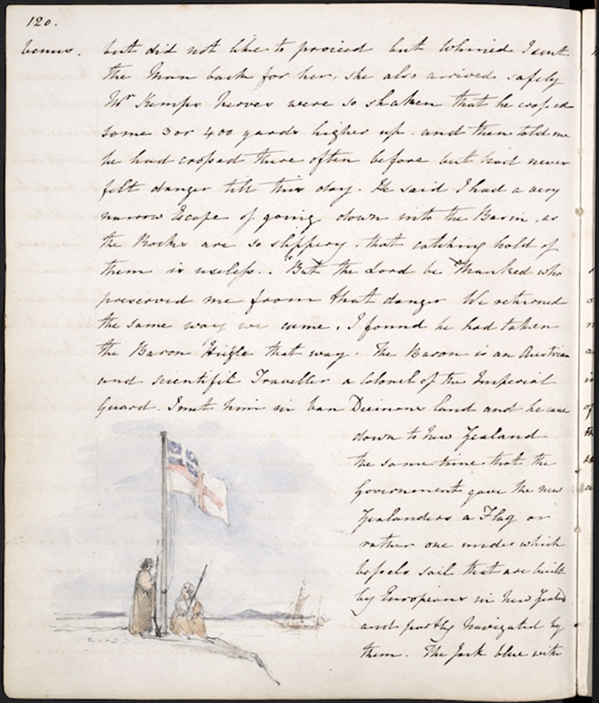 120.
Venus. but did not like to proceed but whined I sent
the Man back for her, she also arrived safely
Mr Kemps Nerves were so shaken that he crossed
some 3 or 400 yards higher up. and then told me
he had crossed there often before but had never
felt danger till this day. He said I had a very
narrow Escape of going down into the Basin, as
the Rocks are so slippery that catching hold of
them is useless. But the Lord be thanked who
preserved me from that danger We returned
the same way we came, I found he had taken
the Baron Hugle that way. The Baron is an Austrian
and scientific Traveller a Colonel of the Imperial
Guard. I met him in Van Deimans Land and he came
down to New Zealand
the same time that the
Government gave the new
Zealanders a Flag or
rather one under which
vessels sail that are built
by Europeans in New Zeald
and navigated by
them. The Jack blue with